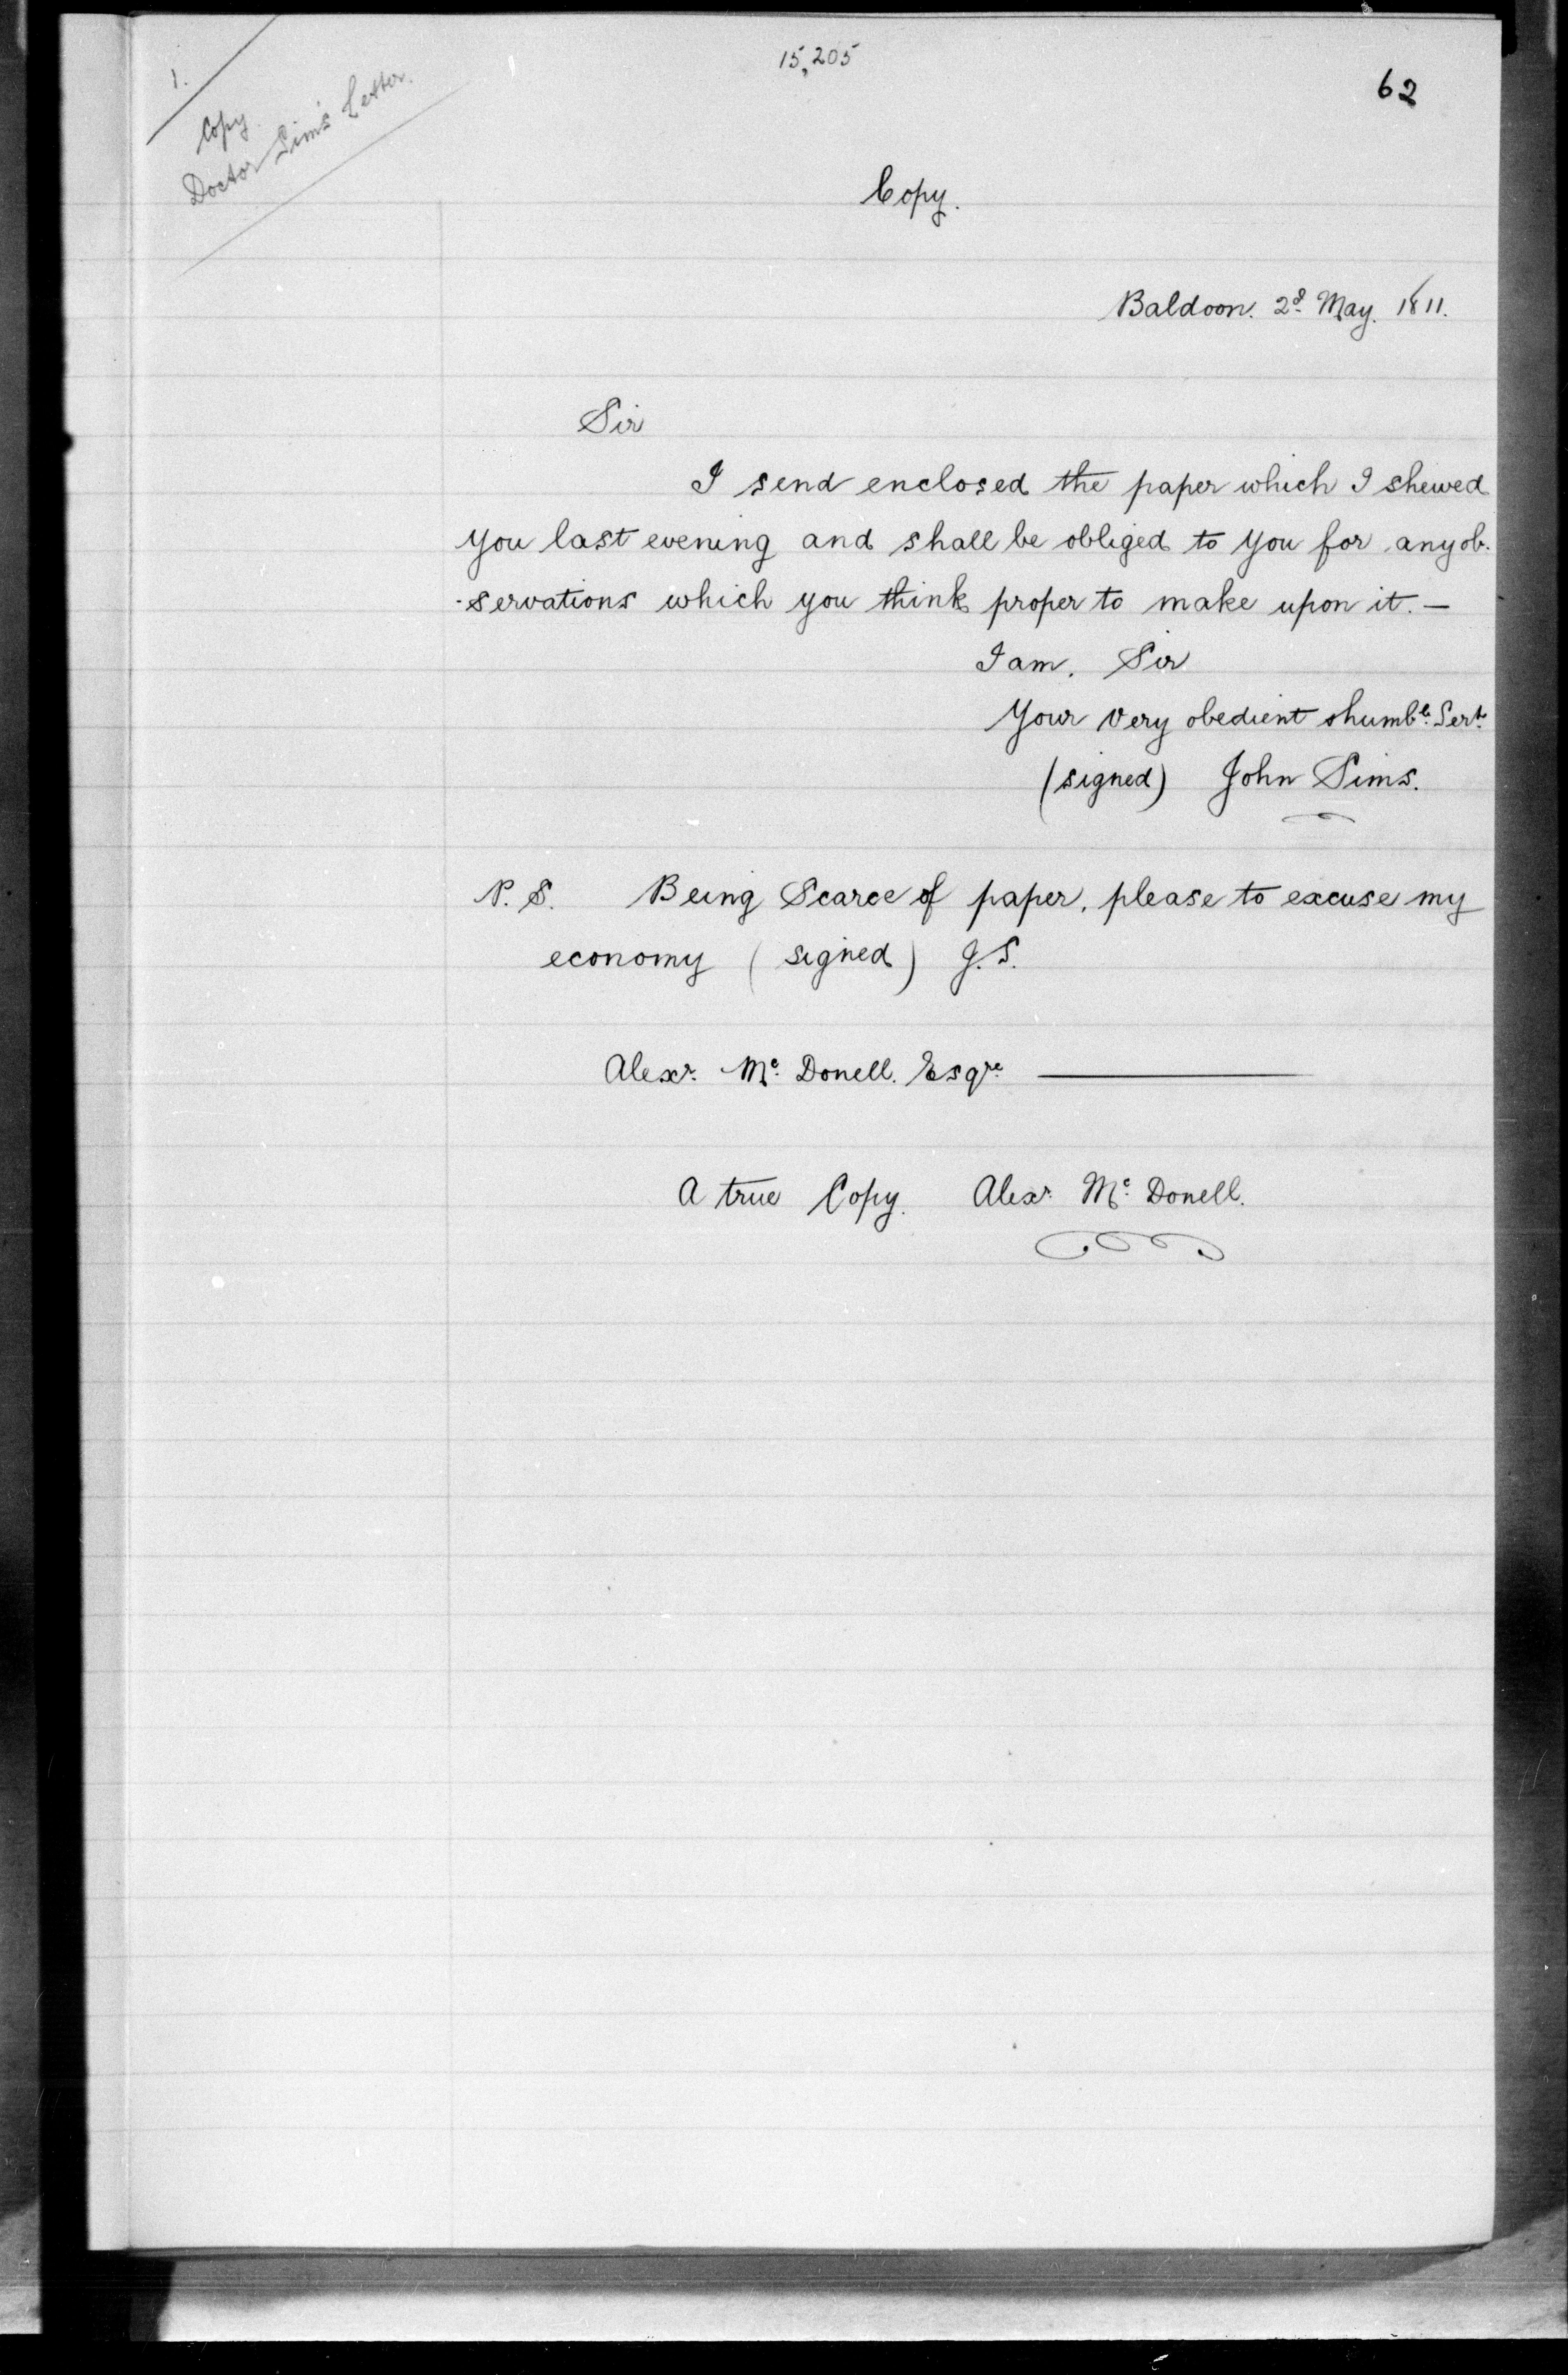 15,205
62
1.
Copy.
Doctor Sims' Letter.
Copy.
Baldoon. 2d. May. 1811.
Sir
I send enclosed the paper which I shewed
you last evening and shall be obliged to you for any ob-
-servations which you think proper to make upon it. —
I am, Sir
Your very obedient & humble. Sert.
(signed) John Sims.
P. S. Being Scarce of paper, please to excuse my
economy (signed) J. S.
Alexr. Mc. Donell. Esqre.
A true Copy. Alexr. Mc. Donell.